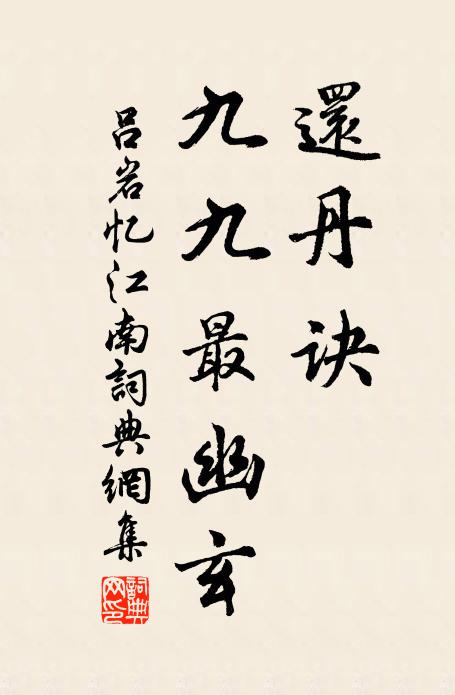 還丹訣
九九最幽玄
吕岩忆江南詞典網集
詞典网印